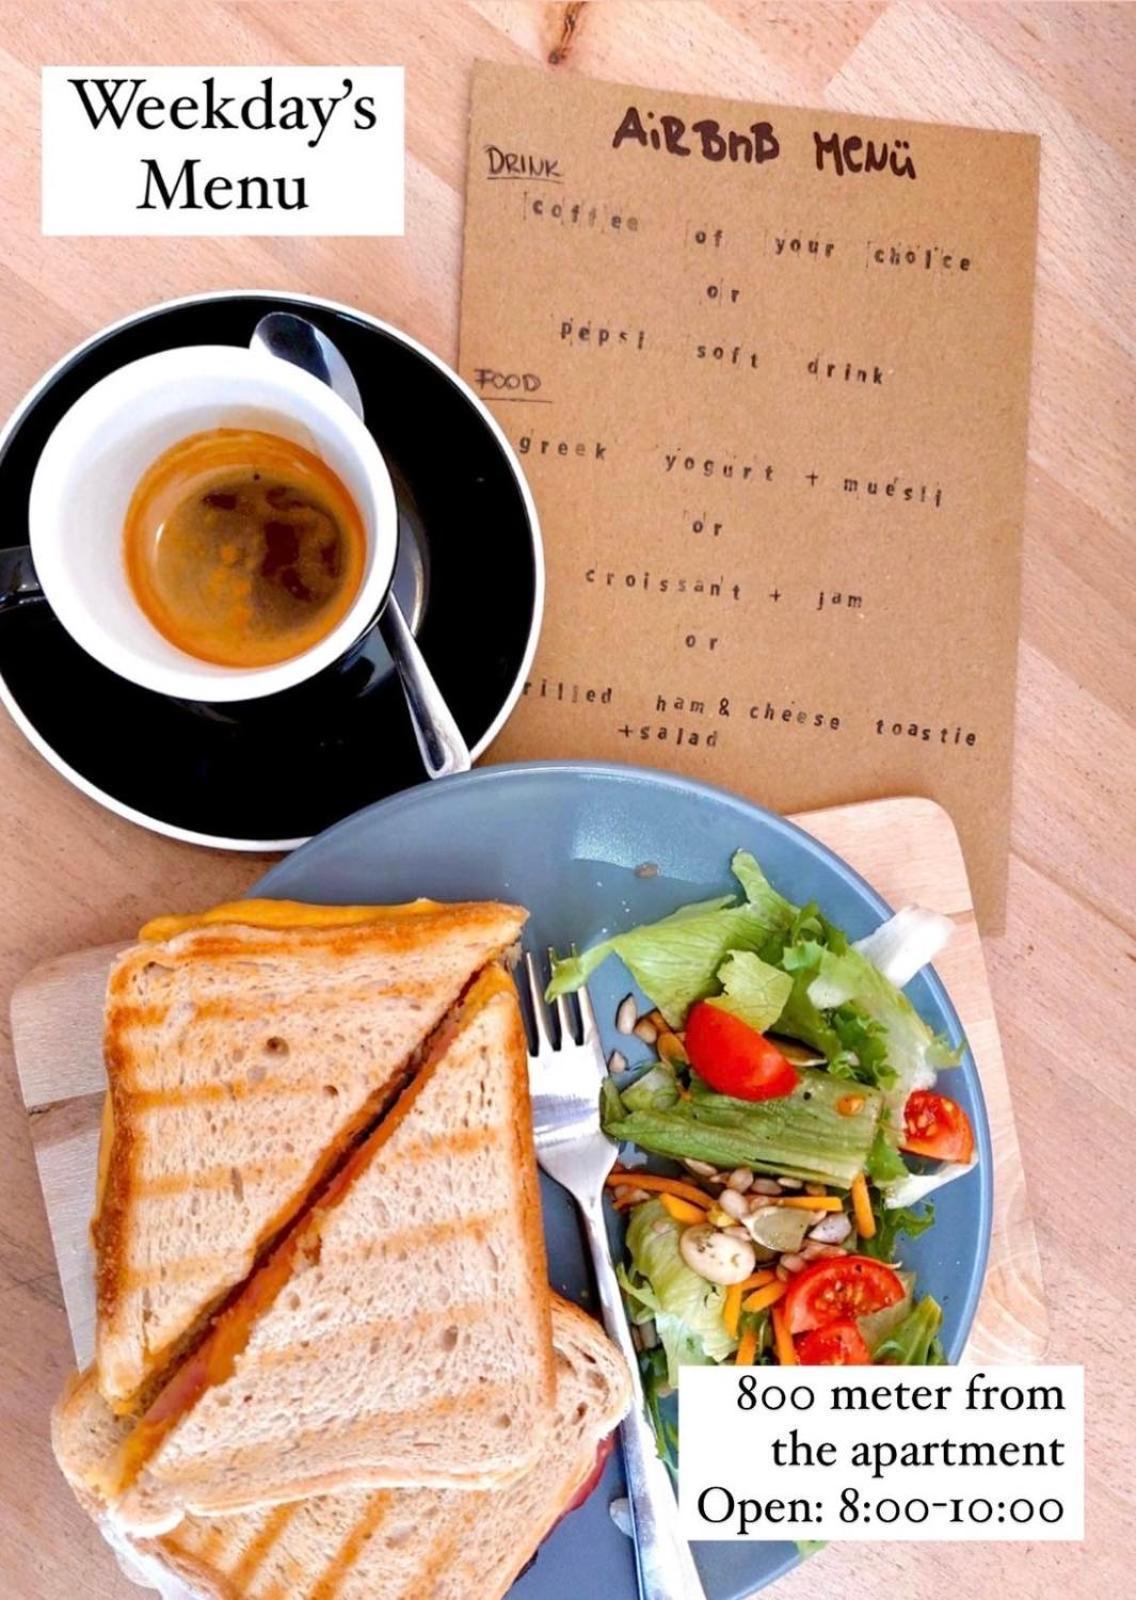 Weekday's
Menu
AiRBnB MENü
DRINK
coffee of your choice
or
pepsi soft drink
FOOD
greek yogurt + muesli
or
croissant + jam
or
rilled ham & cheese toastie
+salad
800 meter from
the apartment
Open: 8:00-10:00